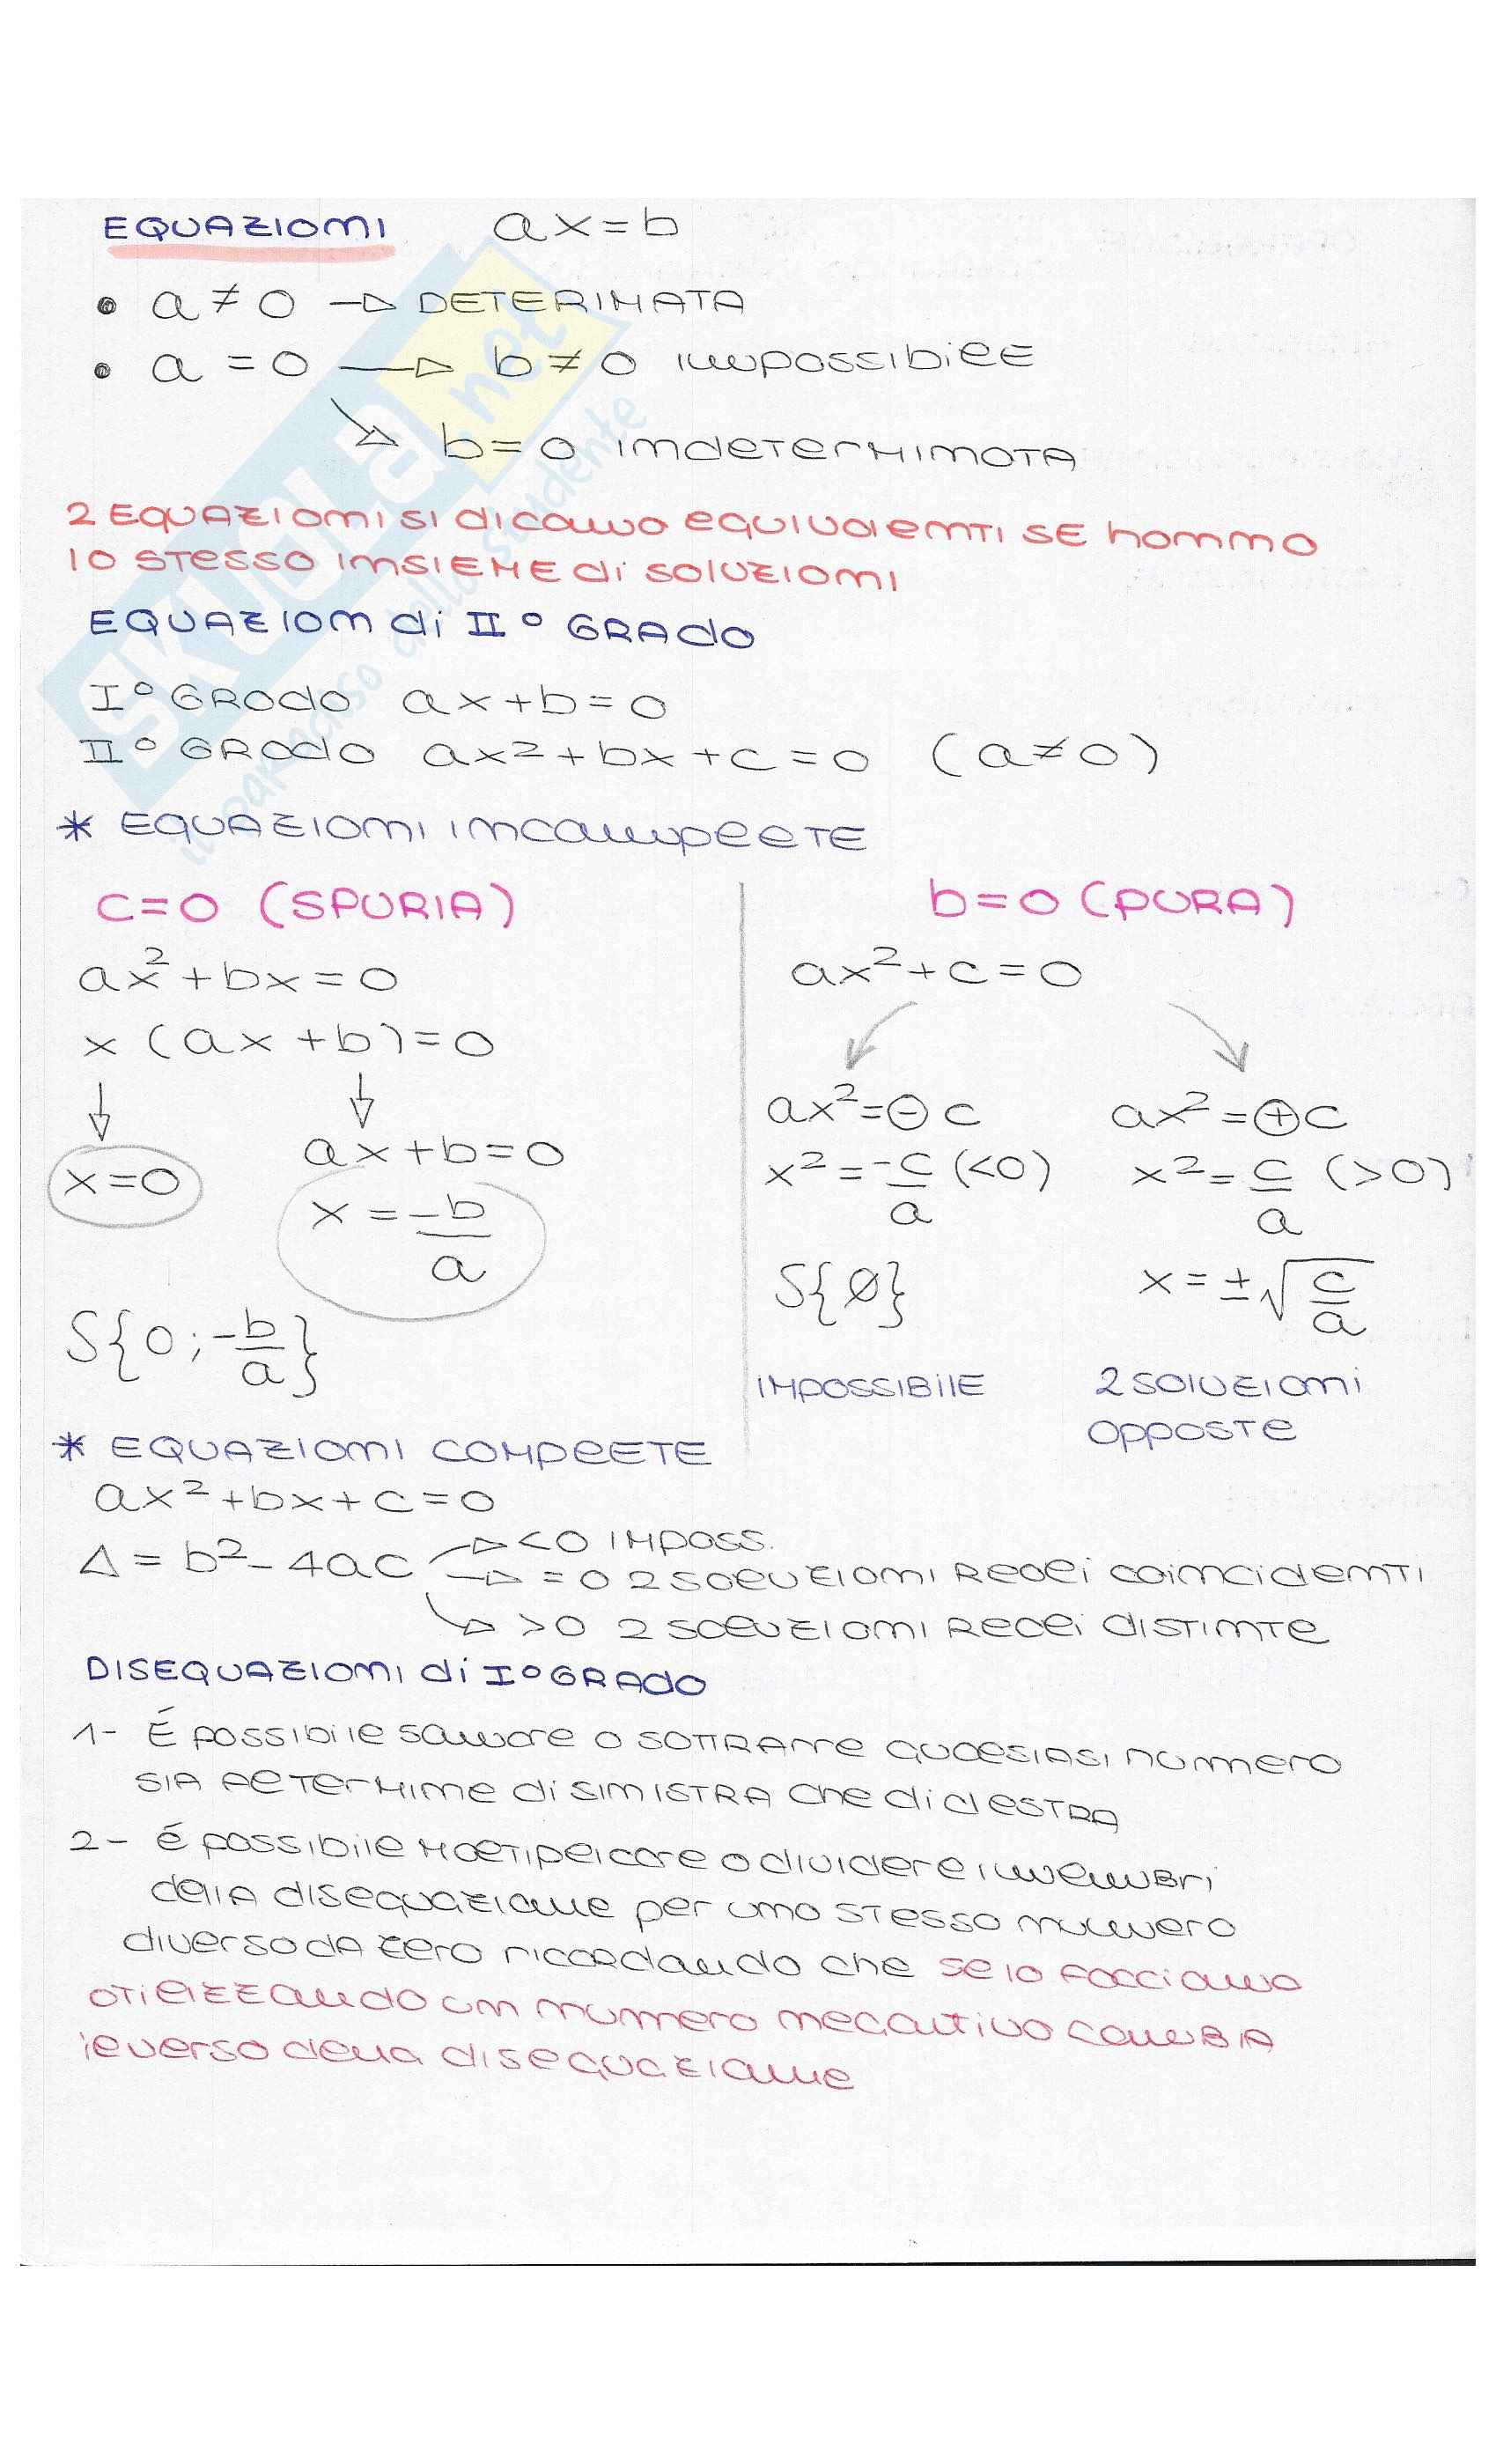 EQUAZIONI ax=b
• a≠0 → DETERINATA
• a=0 → b≠0 impossibile
↘ b=0 indeterminata
2 EQUAZIONI SI dicono equivalenti SE hanno
lo stesso insieme di soluzioni
EQUAZION di II° GRADO
I° GRADO ax+b=0
II° GRADO ax²+bx+c=0 (a≠0)
* EQUAZIONI incomplete
c=0 (SPURIA)
ax²+bx=0
x(ax+b)=0
↓ ↓
x=0 ax+b=0
x=-b/a
S{0;-b/a}
b=0 (PURA)
ax²+c=0
ax²=⊖c ax²=⊕c
x²=-c/a (<0) x²=c/a (>0)
S{∅} x=±√c/a
IMPOSSIBILE 2 soluzioni
opposte
* EQUAZIONI COMPLETE
ax²+bx+c=0
Δ=b²-4ac → <0 IMPOSS.
→ =0 2 soluzioni Reali coincidenti
→ >0 2 soluzioni Reali distinte
DISEQUAZIONI di I° GRADO
1- É possibile sommare o sottrarre qualsiasi numero
sia al termine di sinistra che di destra
2- é possibile moltiplicare o dividere i membri
della disequazione per uno stesso numero
diverso da zero ricordando che se lo facciamo
utilizzando un numero negativo cambia
il verso della disequazione
SKUOLA.net
il paradiso dello studente